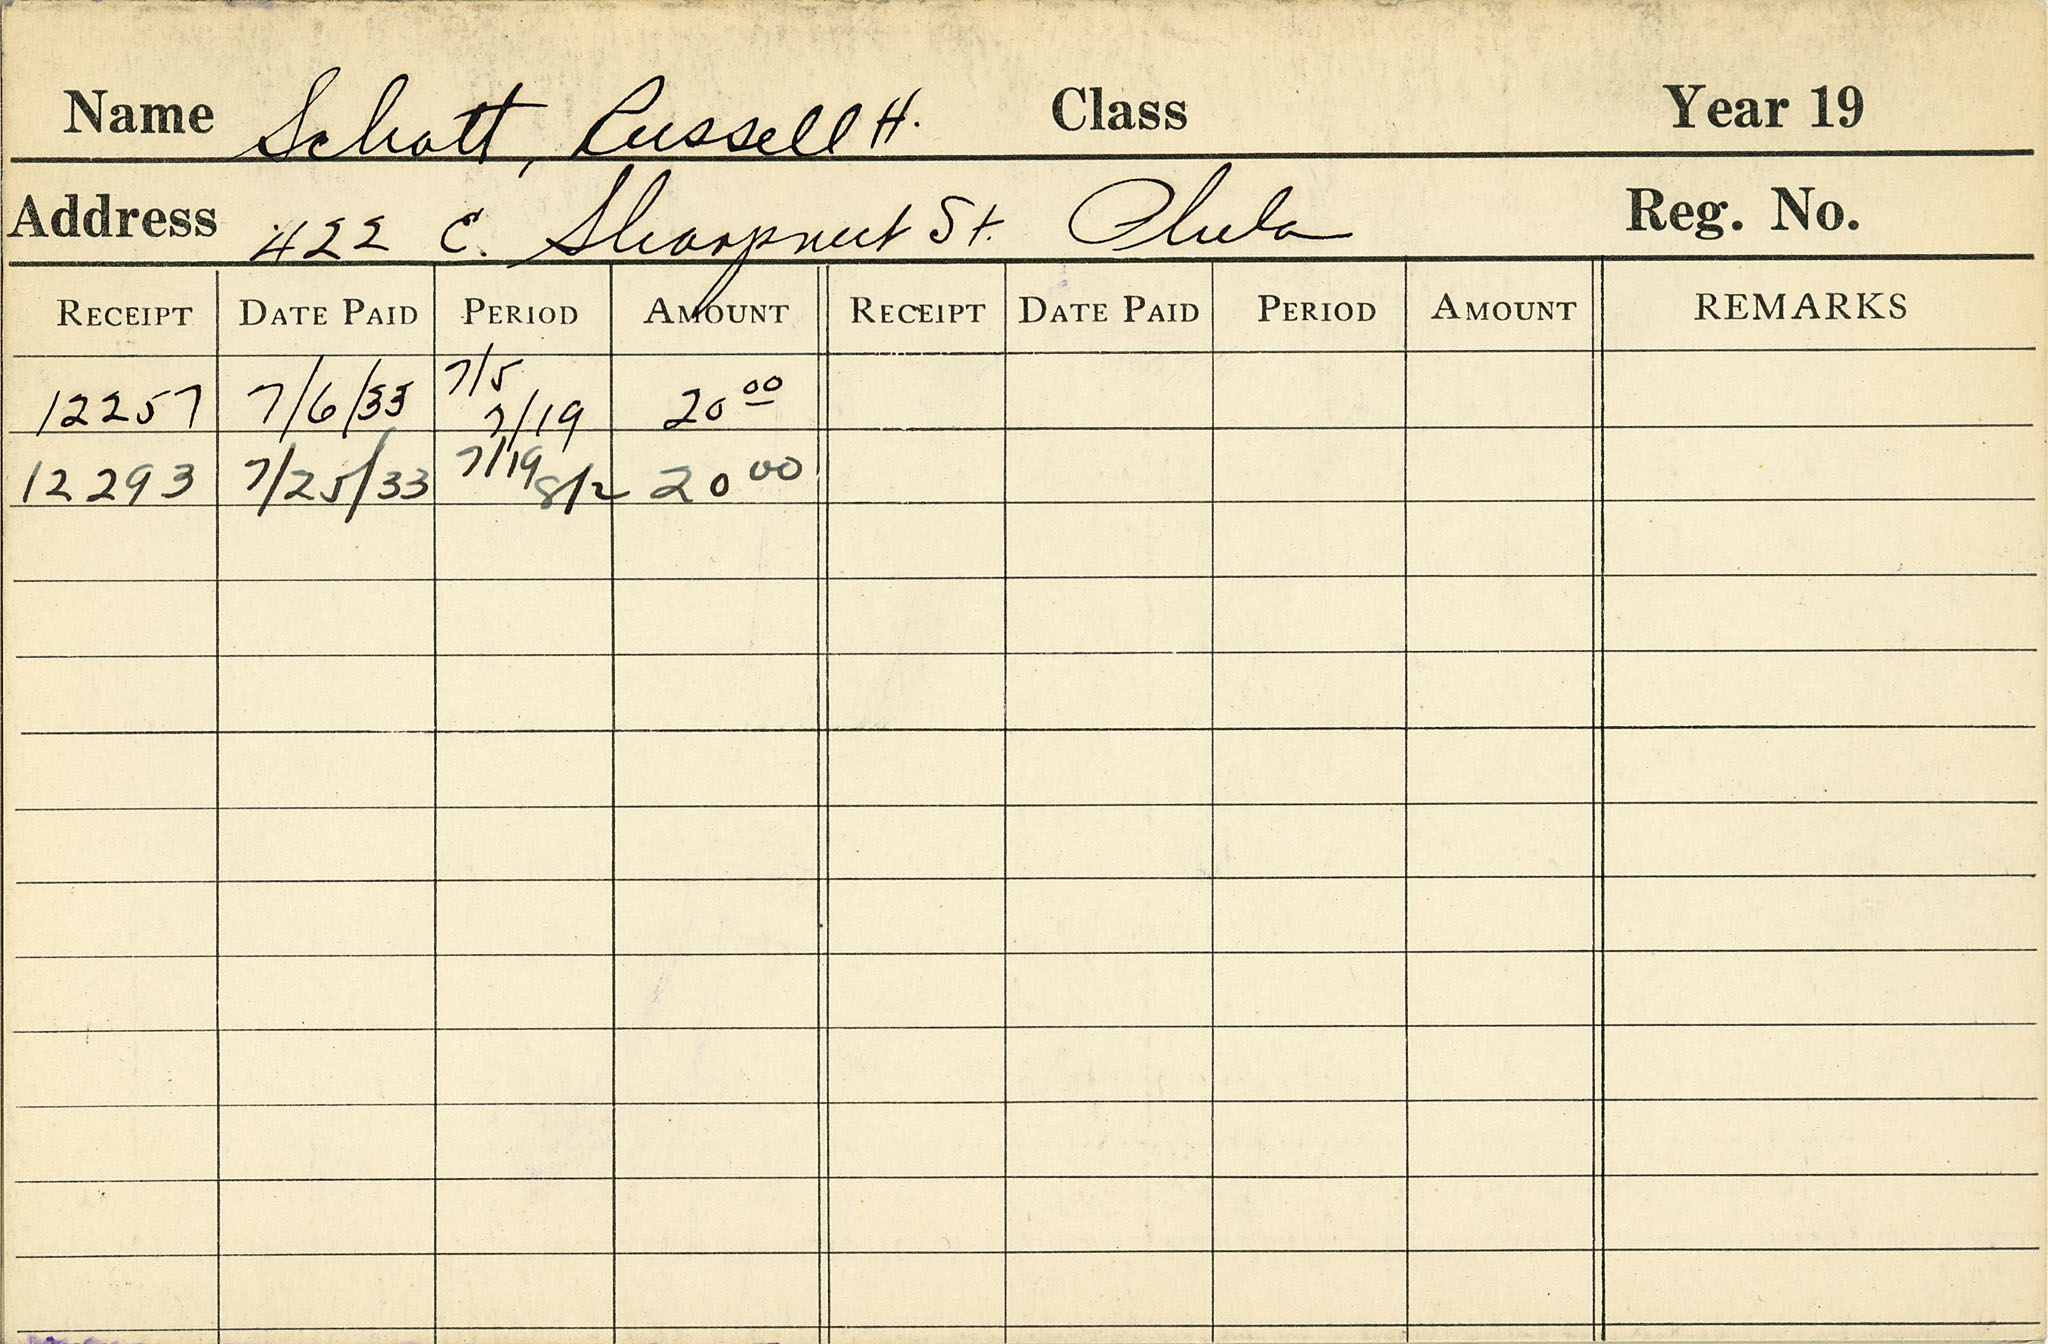 Name Schott, Russell H. Class Year 19
Address 422 E. Sharpnect St. Phila Reg. No.
RECEIPT DATE PAID PERIOD AMOUNT RECEIPT DATE PAID PERIOD AMOUNT REMARKS
12257 7/6/33 7/5 7/19 20 00
12293 7/25/33 7/19 8/2 20 00